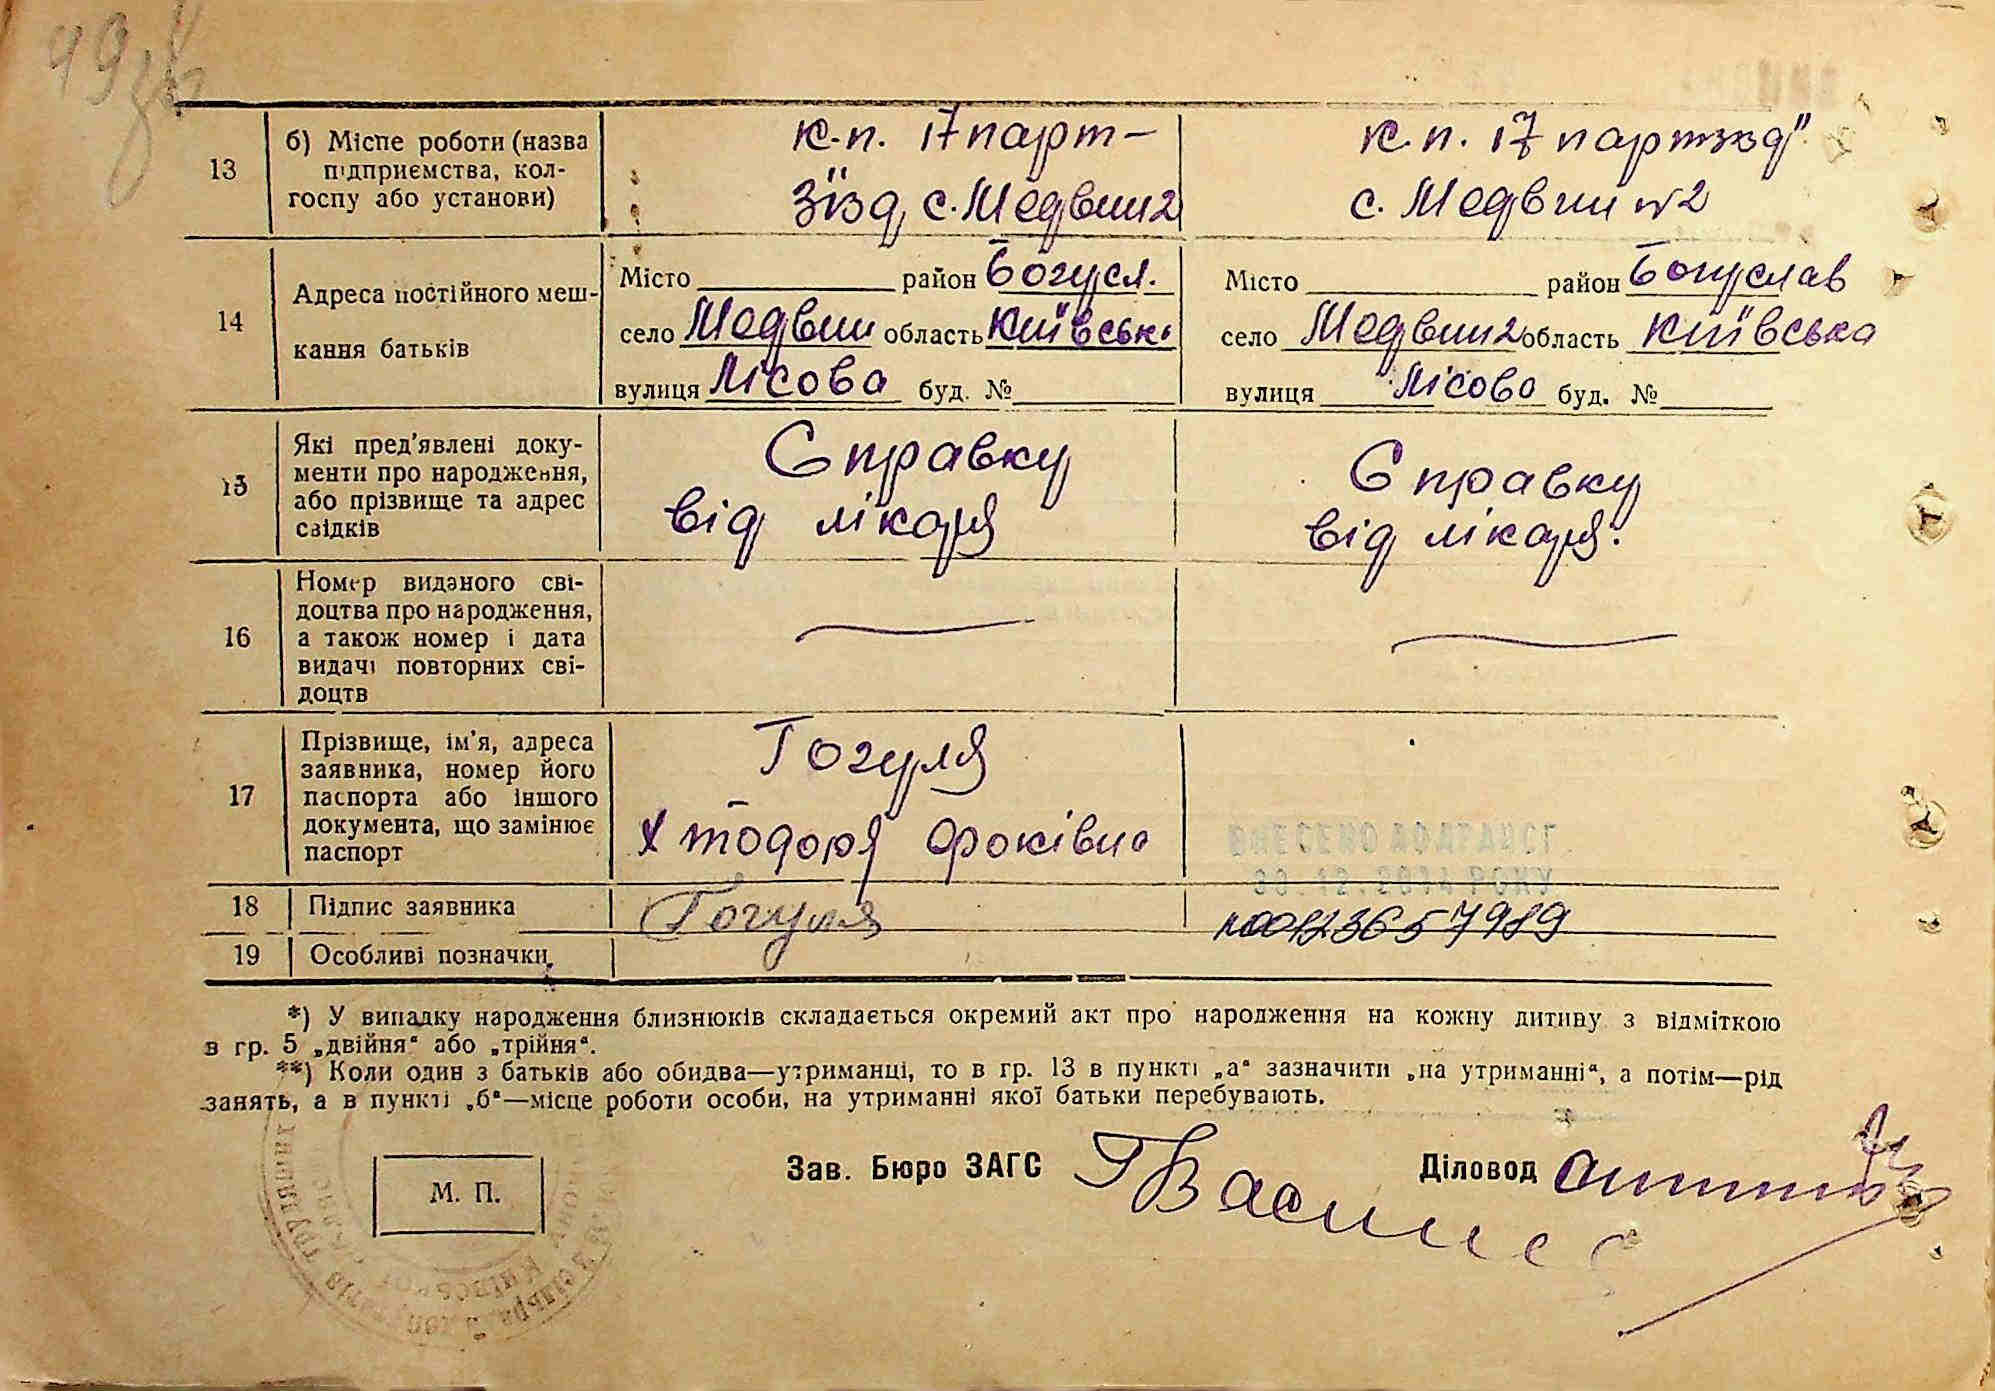 49зв
13
б) Місце роботи (назва
підприємства, кол-
госпу або установи)
к.п. 17 парт-
зʼїзд, с. Медвин 2
к.п. 17 партзʼїзд"
с. Медвин №2
14
Адреса постійного меш-
кання батьків
Місто район Богусл.
село Медвин область Київськ.
вулиця Лісова буд. №
Місто район Богуслав
село Медвин 2 область Київська
вулиця Лісова буд. №
15
Які пред'явлені доку-
менти про народження,
або прізвище та адрес
свідків
Справку
від лікаря
Справку
від лікаря.
16
Номер виданого сві-
доцтва про народження,
а також номер і дата
видачі повторних сві-
доцтв
17
Прізвище, ім'я, адреса
заявника, номер його
паспорта або іншого
документа, що замінює
паспорт
Гогуля
х тодоря Фоківна
ВНЕСЕНО ДО ДРАЦСГ
30.12.2014 РОКУ
18
Підпис заявника
Гогуля
№00123657989
19
Особливі позначки
*) У випадку народження близнюків складається окремий акт про народження на кожну дитину з відміткою
в гр. 5 „двійня“ або „трійня“.
**) Коли один з батьків або обидва—утриманці, то в гр. 13 в пункті „а“ зазначити „на утриманні“, а потім—рід
занять, а в пункті „б“—місце роботи особи, на утриманні якої батьки перебувають.
М. П.
Зав. Бюро ЗАГС
Діловод